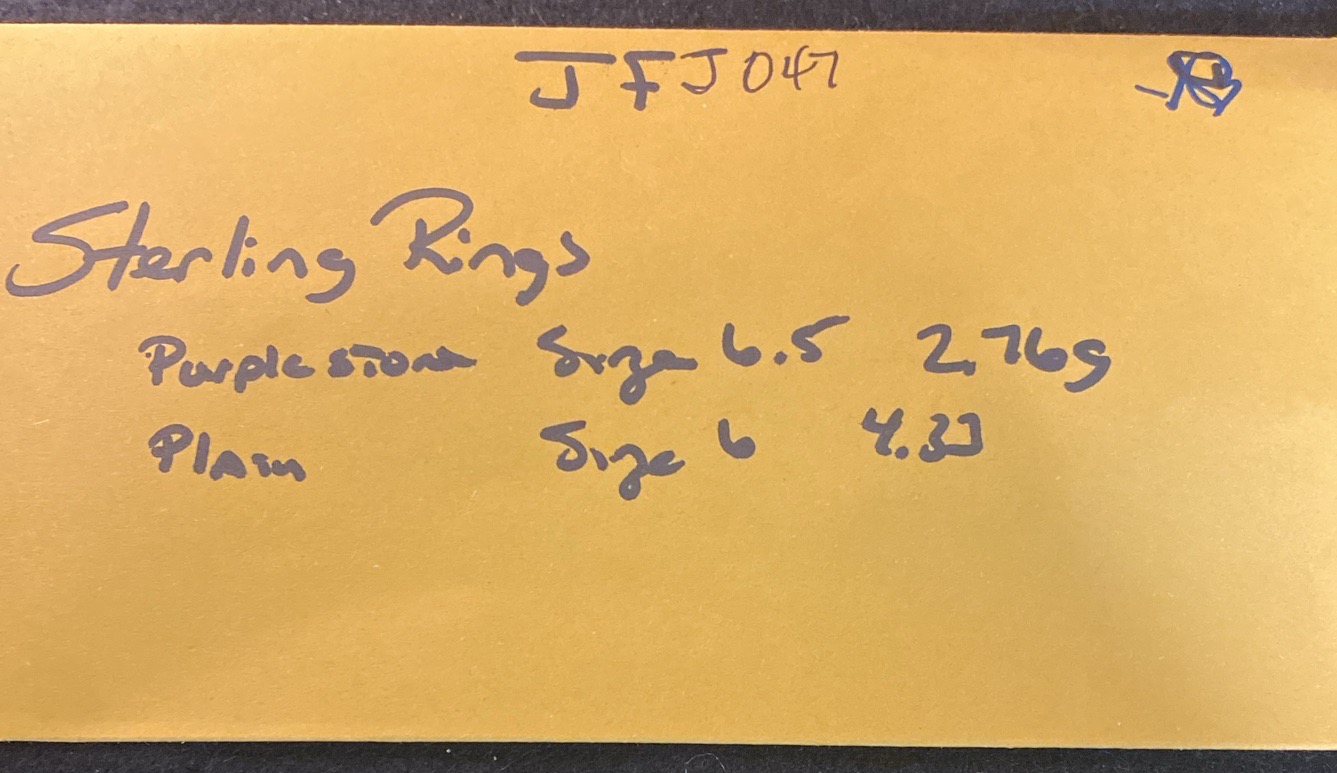 JFJ047
Sterling Rings
Purple stone Size 6.5 2.76g
Plain Size 6 4.33